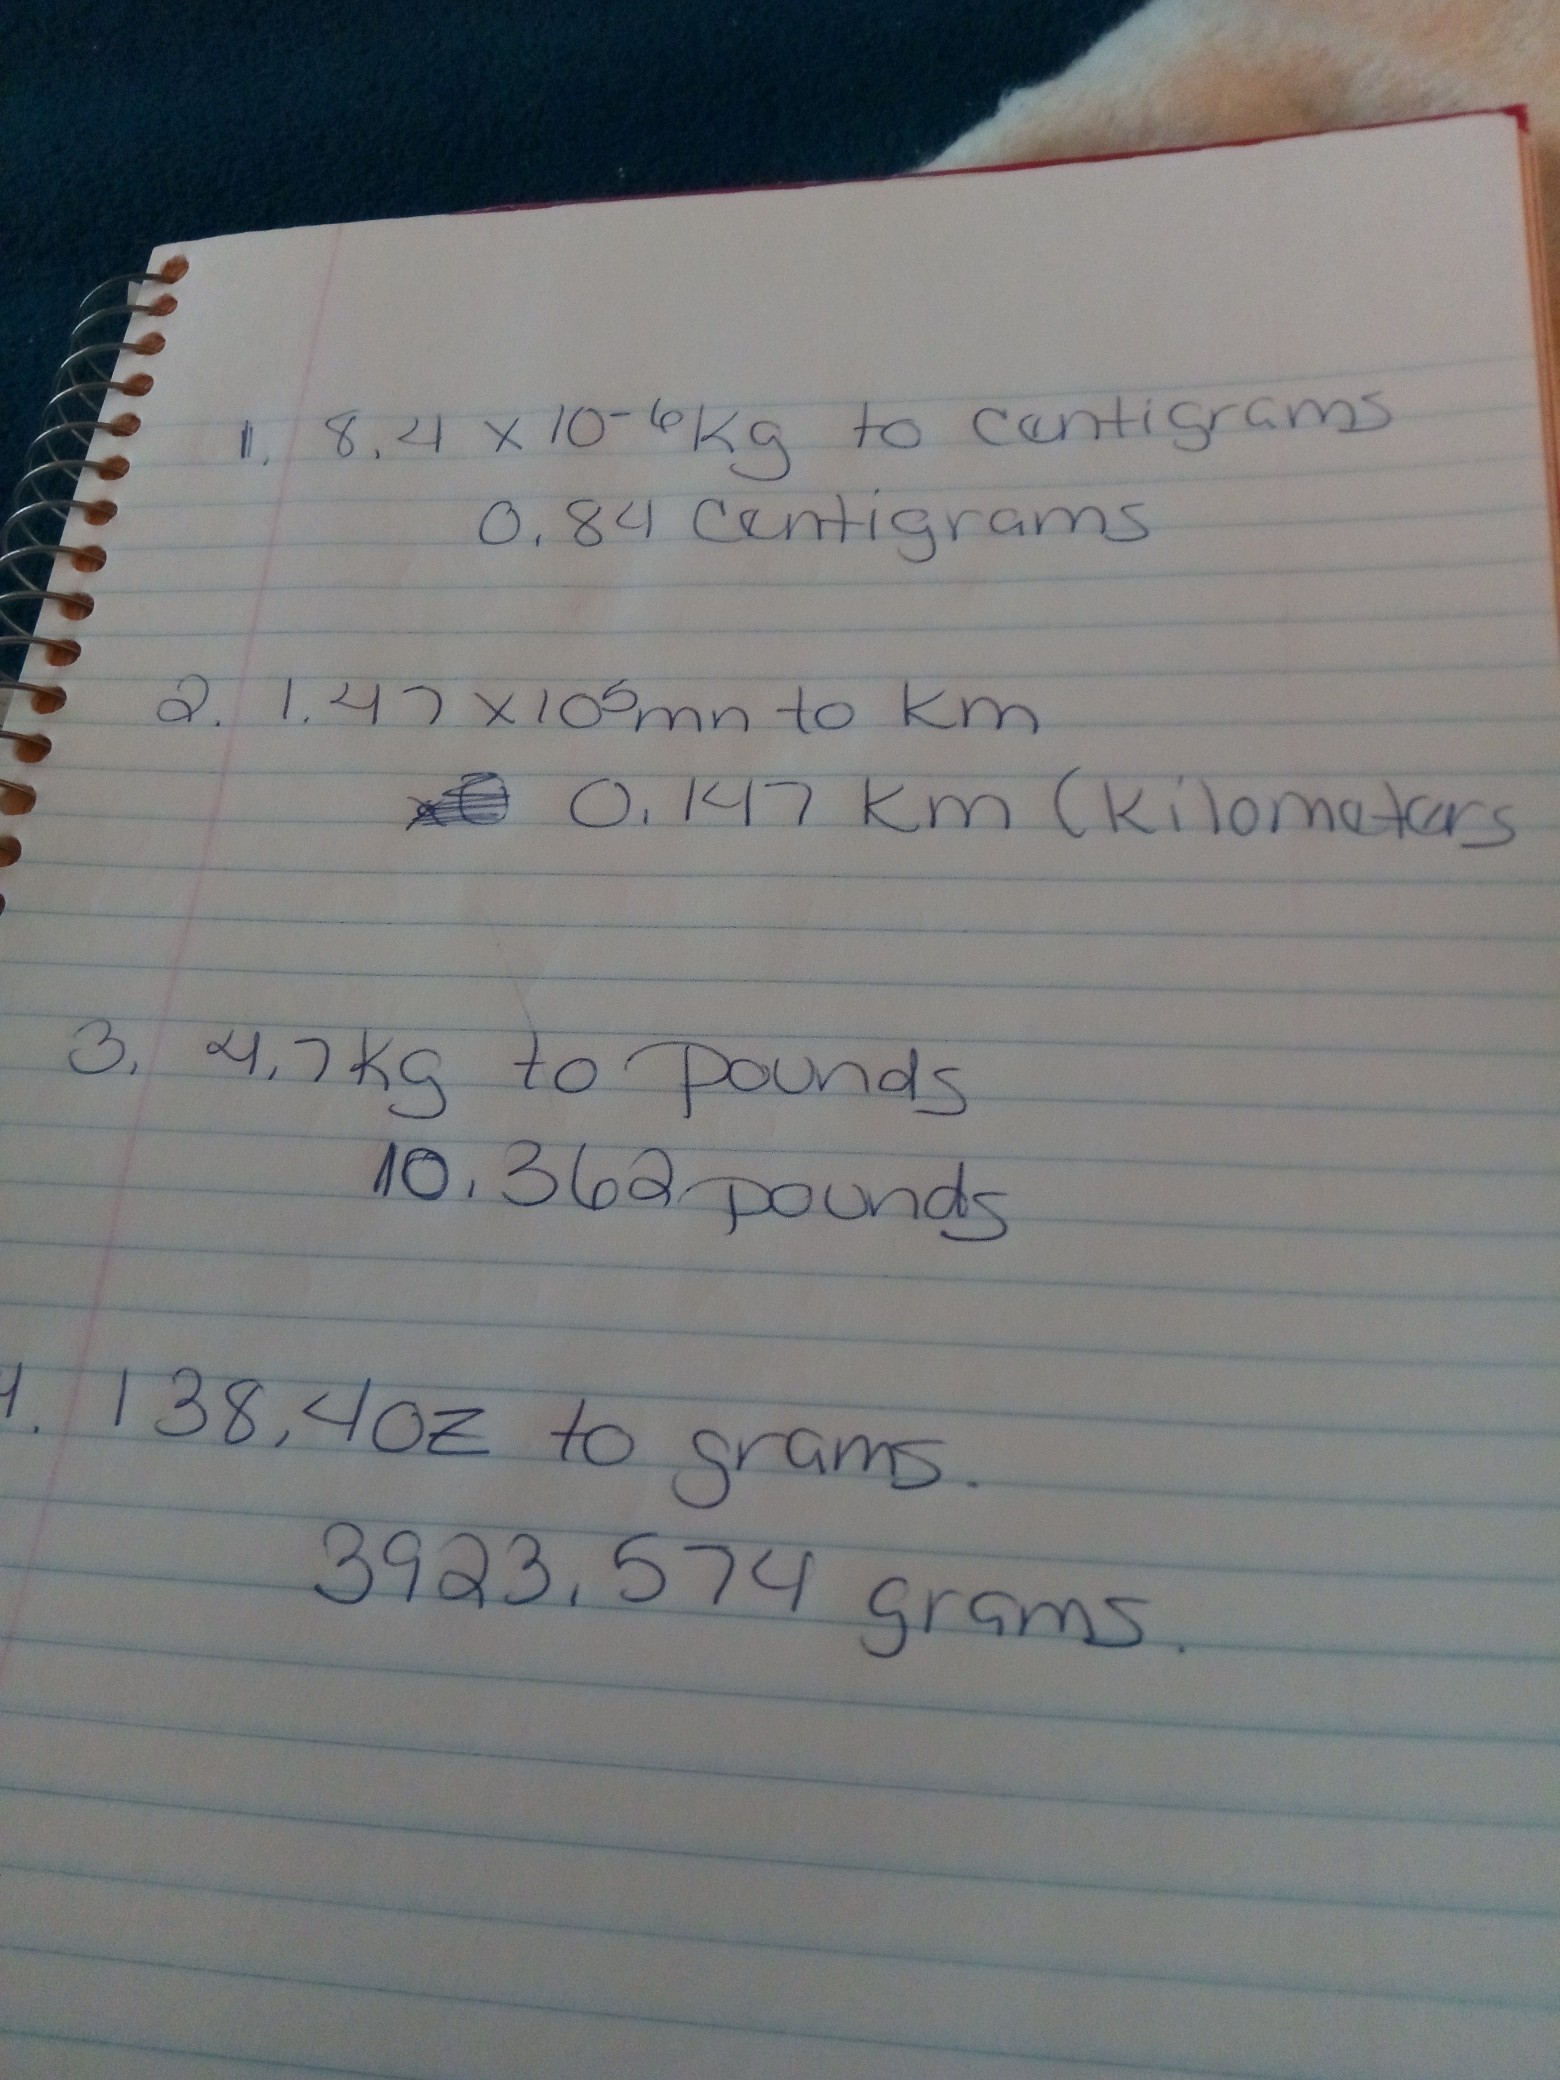 1. 8.4 x 10-6 kg to centigrams
0.84 Centigrams
2. 1.47 x 10⁵mn to km
0.147 km (kilometers
3. 4.7 kg to pounds
10.362 pounds
4. 138.4oz to grams.
3923.574 grams.